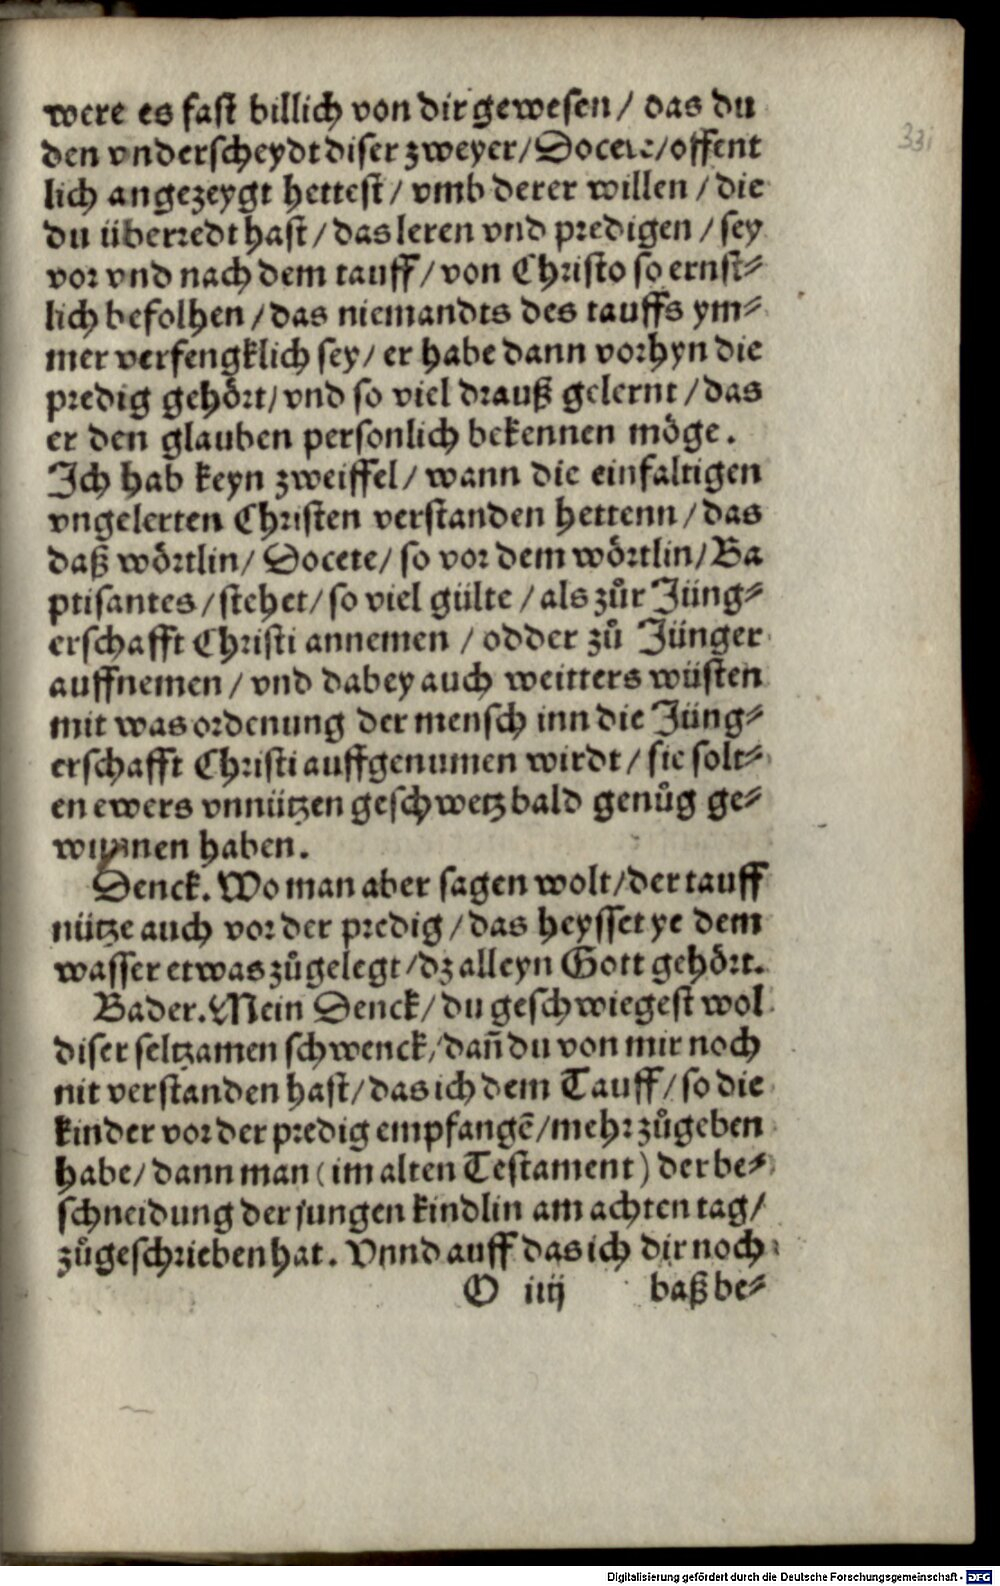 were es fast billich von dir gewesen / das du
den vnderscheydt diser zweyer / Docete / offent
lich angezeygt hettest / vmb derer willen / die
du überredt hast / das leren vnd predigen / sey
vor vnd nach dem tauff / von Christo so ernst⸗
lich befolhen / das niemandts des tauffs ym⸗
mer verfengklich sey / er habe dann vorhyn die
predig gehört / vnd so viel drauß gelernt / das
er den glauben personlich bekennen möge.
Ich hab keyn zweiffel / wann die einfaltigen
vngelerten Christen verstanden hettenn / das
daß wörtlin / Docete / so vor dem wörtlin / Ba
ptisantes / stehet / so viel gülte / als zůr Jüng⸗
erschafft Christi annemen / odder zů Jünger
auffnemen / vnd dabey auch weitters wüsten
mit was ordenung der mensch inn die Jüng⸗
erschafft Christi auffgenumen wirdt / sie solt⸗
en ewers vnnützen geschwetz bald genůg ge⸗
wunnen haben.
Denck. Wo man aber sagen wolt / der tauff
nütze auch vor der predig / das heysset ye dem
wasser etwas zůgelegt / dz alleyn Gott gehört.
Bader. Mein Denck / du geschwiegest wol
diser seltzamen schwenck / dañ du von mir noch
nit verstanden hast / das ich dem Tauff / so die
kinder vor der predig empfangẽ / mehr zůgeben
habe / dann man (im alten Testament) der be⸗
schneidung der jungen kindlin am achten tag /
zůgeschrieben hat. Vnnd auff das ich dir noch
O iiij baß be⸗
331
Digitalisierung gefördert durch die Deutsche Forschungsgemeinschaft - DFG